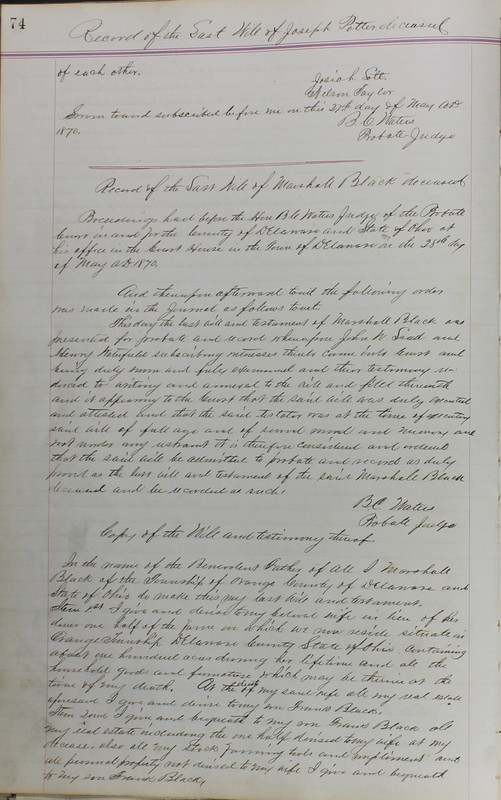 74
Record of the Last Will of Joseph Potter deceased
of each other.
Josiah
Nelson Taylor
Sworn to and subscribed before me on this 27th day of May AD
1870.
B.C. Waters
Probate Judge
Record of the Last Will of Marshall Black deceased
Proceedings had before the Hon B.C. Waters Judge of the Probate
Court in and for the County of Delaware and State of Ohio at
his office in the Court House in the Town of Delaware on the 28th day
of May AD 1870.
And thereupon afterward towit the following order
was made in the Journal as follows towit.
This day the last will and testament of Marshall Black was
presented for probate and record whereupon John W. and
Henry subscribing witnesses thereto came into Court and
being duly sworn and fully examined and their testimony re-
duced to writing and annexed to the will and filed therewith
and it appearing to the Court that the said will was duly executed
and attested and that the said testator was at the time of executing
said will of full age and of sound mind and memory and
not under any restraint It is therefore considered and ordered
that the said will be admitted to probate and record as duly
proved as the last will and testament of the said Marshall Black
deceased and be recorded as such.
B.C. Waters
Probate Judge
Copy of the Will and testimony thereof
In the name of the Benevolent Father of All I Marshall
Black of the Township of Orange County of Delaware and
State of Ohio do make this my last will and testament.
Item 1st I give and devise to my beloved wife in lieu of her
dower one half of the farm on which we now reside situate in
Orange Township Delaware County State of Ohio containing
about one hundred acres during her lifetime and all the
household goods and furniture which may be therein at the
time of my death. At the death of my said wife all my real estate
aforesaid I give and devise to my son Frank Black.
Item 2nd I give and bequeath to my son Frank Black all
my real estate including the one half devised to my wife at my
decease, also all my stock farming tools and impliments and
all personal property not devised to my wife I give and bequeath
to my son Frank Black,